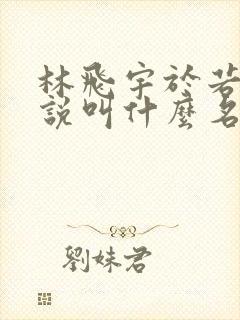 林飛宇於若
說叫什麼名
劉妹君